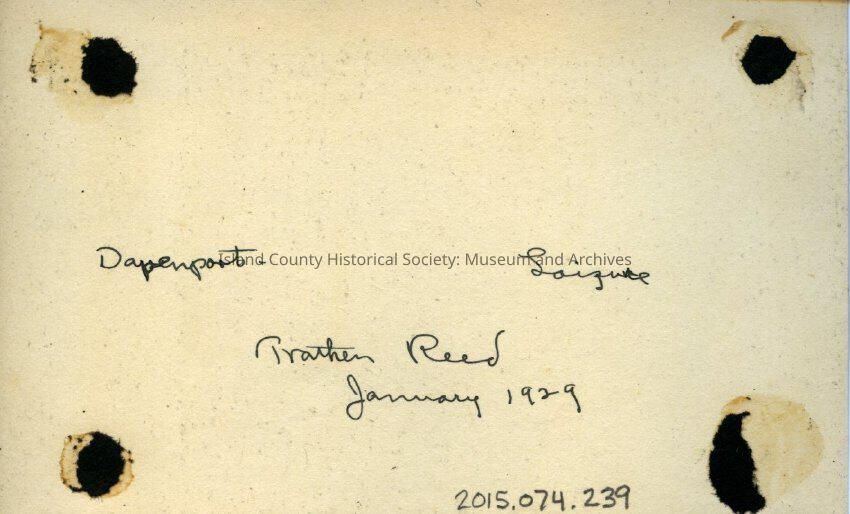 Davenport - Loizure
Island County Historical Society: Museum and Archives
Trathen Reed
January 1929
2015.074.239